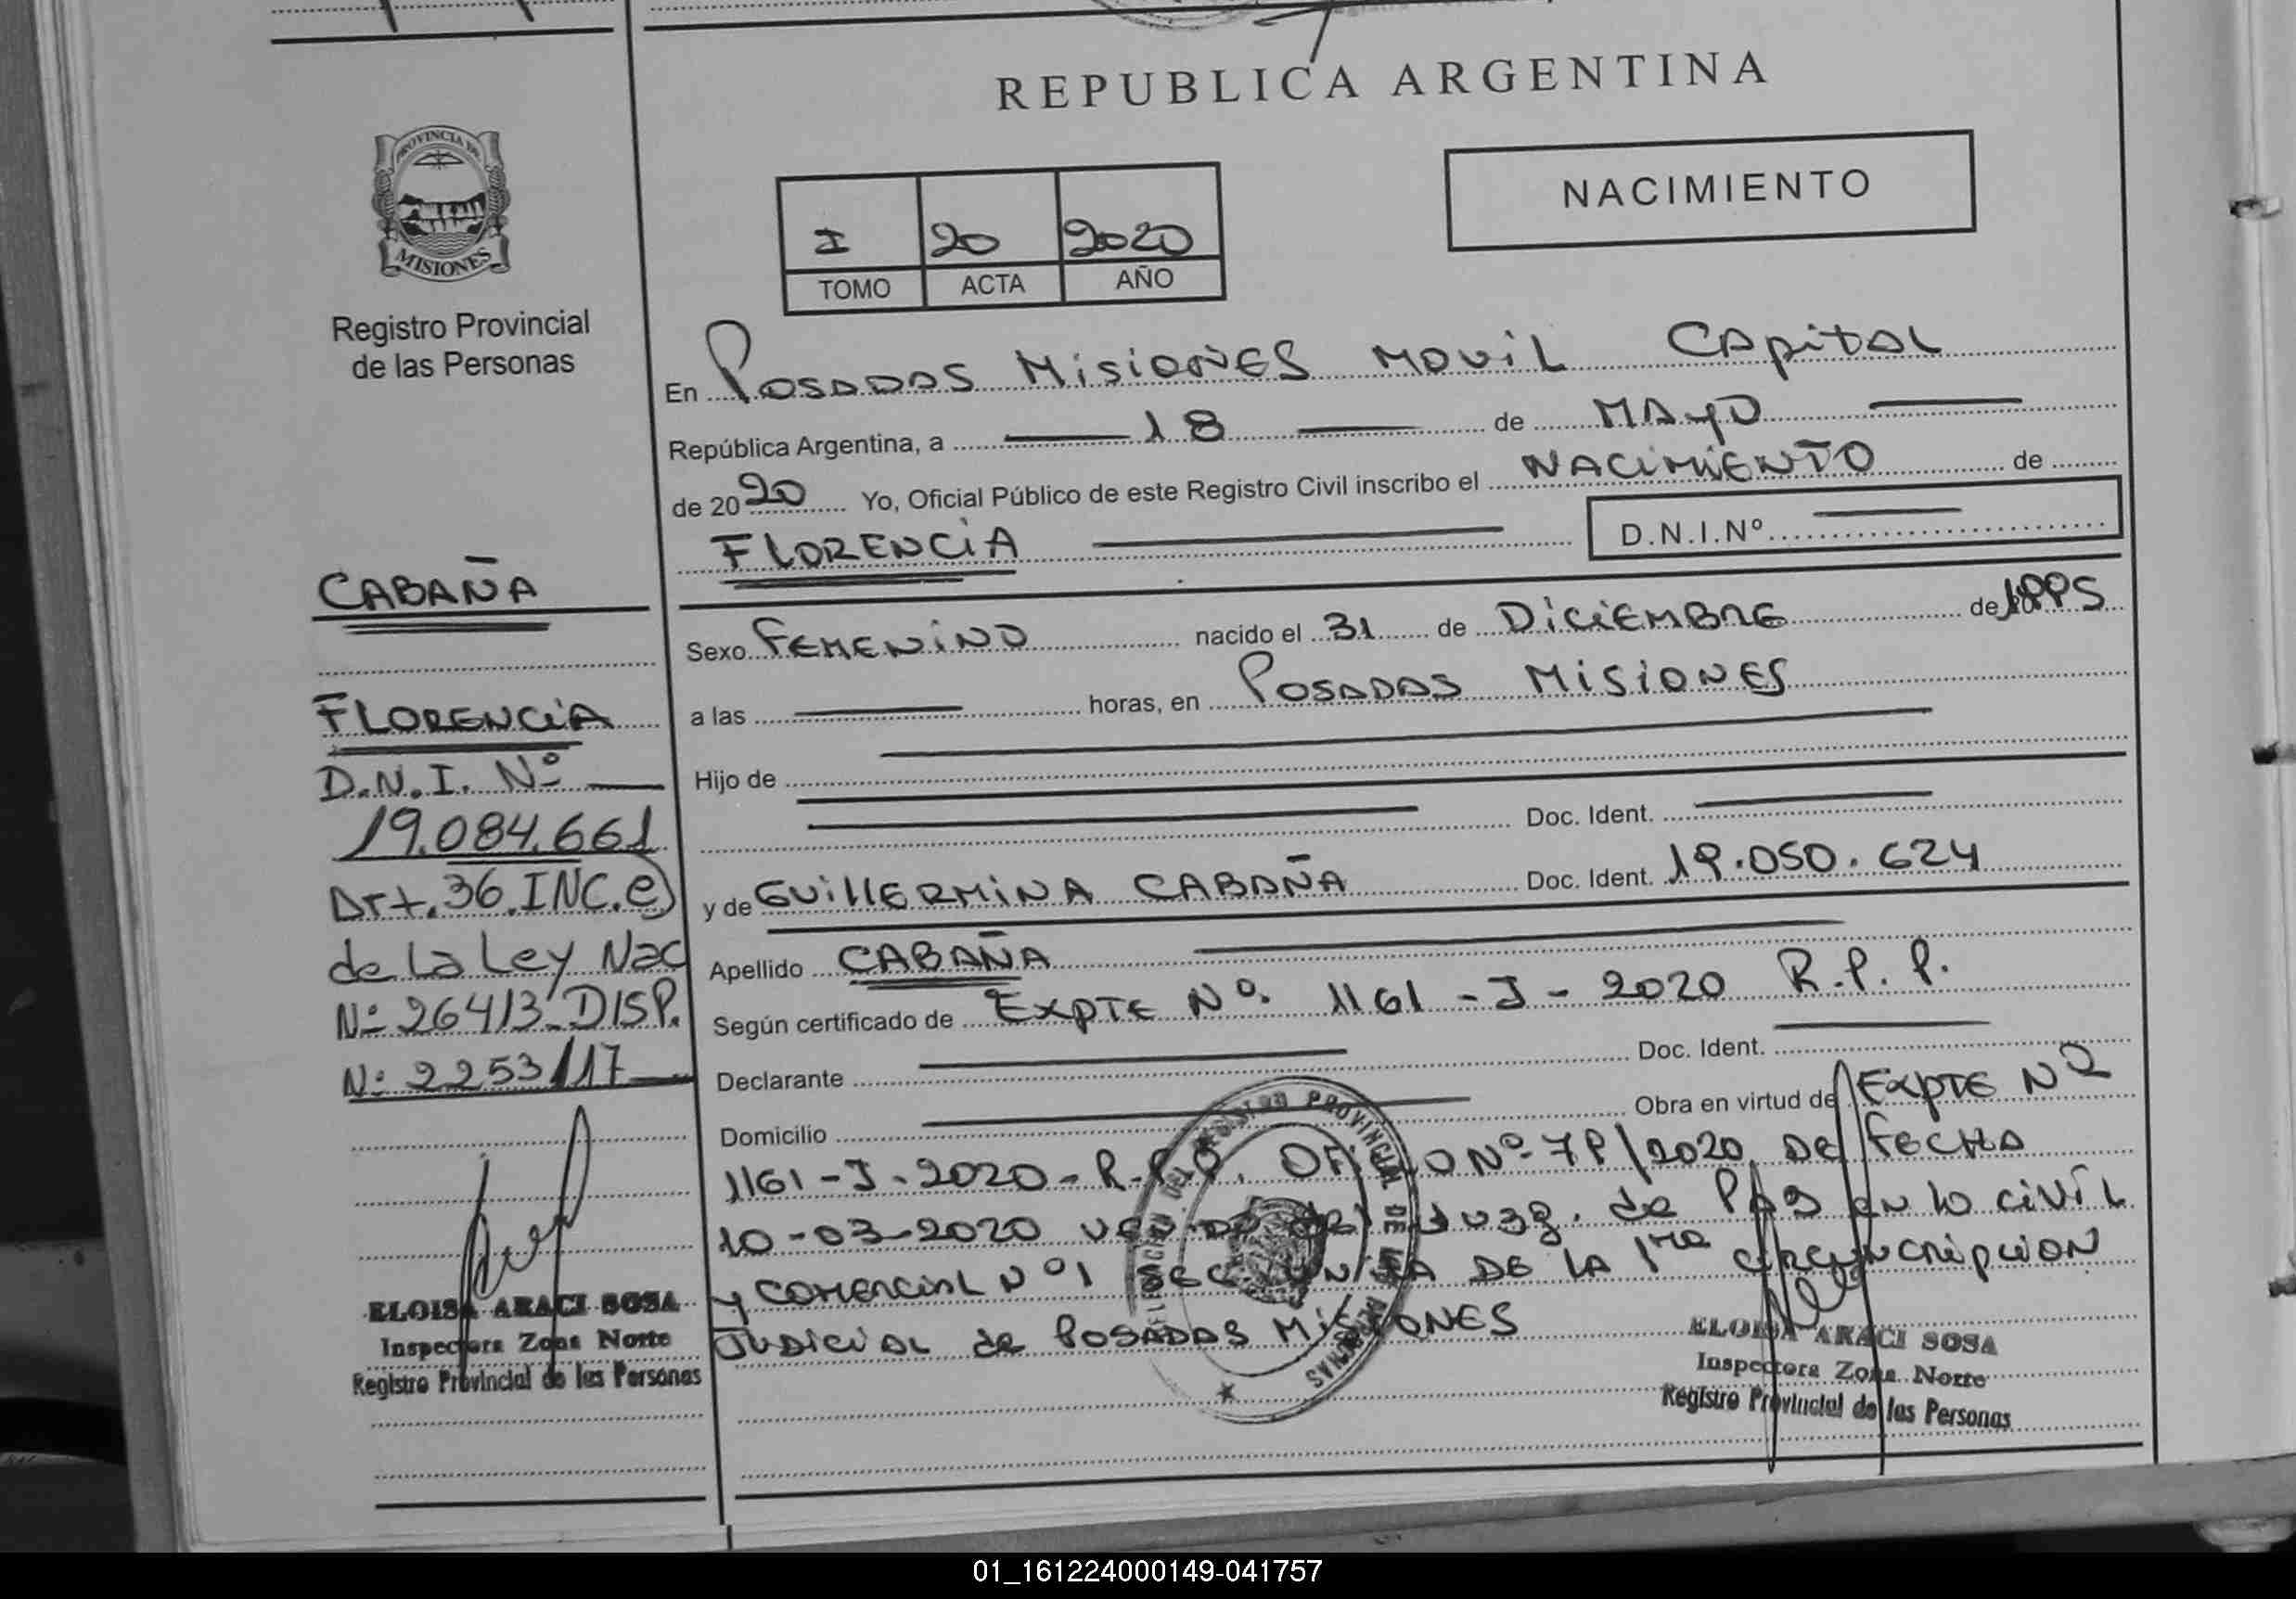 REPUBLICA ARGENTINA
NACIMIENTO
PROVINCIA DE
MISIONES
Registro Provincial
de las Personas
I 20 2020
TOMO ACTA AÑO
En Posadas Misiones Movil Capital
República Argentina, a 18 de Mayo
de 2020 Yo, Oficial Público de este Registro Civil inscribo el NACIMIENTO de
FLORENCIA D.N.I.Nº
Sexo FEMENINO nacido el 31 de DICIEMBRE de 1995
a las horas, en POSADAS MISIONES
Hijo de
Doc. Ident.
y de GUILLERMINA CABAÑA Doc. Ident. 19.050.624
Apellido CABAÑA
Según certificado de EXPTE Nº. 1161 - J - 2020 R.P.P.
Declarante Doc. Ident.
Domicilio Obra en virtud de EXPTE Nº
1161-J-2020-R.P.P. Nº 79/2020 DE FECHA
10-03-2020 del Juzg. de PAS en lo civil
y COMERCIAL Nº1 DE LA 1ra circuncripcion
JUDICIAL de POSADAS MISIONES
ELOISA ARACI SOSA
Inspectora Zona Norte
Registro Provincial de las Personas
CABAÑA
FLORENCIA
D.N.I. Nº
19.084.661
Art. 36 INC. e)
de la Ley Nac
Nº 26413 DISP.
Nº 2253/17
ELOISA ARACI SOSA
Inspectora Zona Norte
Registro Provincial de las Personas
01_161224000149-041757